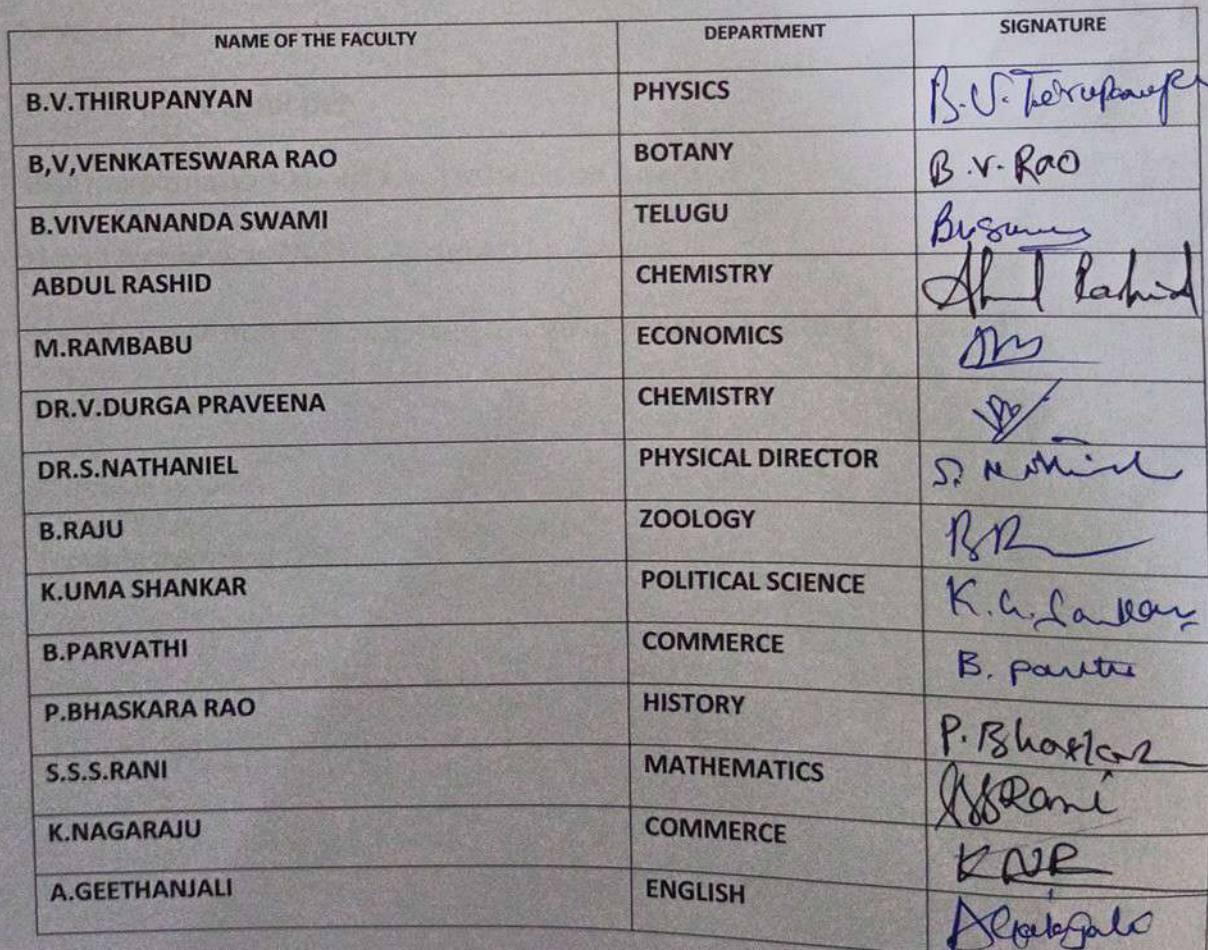 NAME OF THE FACULTY DEPARTMENT SIGNATURE
B.V.THIRUPANYAN PHYSICS B.V.Thirupanyan
B,V,VENKATESWARA RAO BOTANY B.V.Rao
B.VIVEKANANDA SWAMI TELUGU
ABDUL RASHID CHEMISTRY Abdul Rashid
M.RAMBABU ECONOMICS
DR.V.DURGA PRAVEENA CHEMISTRY
DR.S.NATHANIEL PHYSICAL DIRECTOR
B.RAJU ZOOLOGY
K.UMA SHANKAR POLITICAL SCIENCE
B.PARVATHI COMMERCE
P.BHASKARA RAO HISTORY P.Bhaskar
S.S.S.RANI MATHEMATICS SSSRani
K.NAGARAJU COMMERCE KNR
A.GEETHANJALI ENGLISH